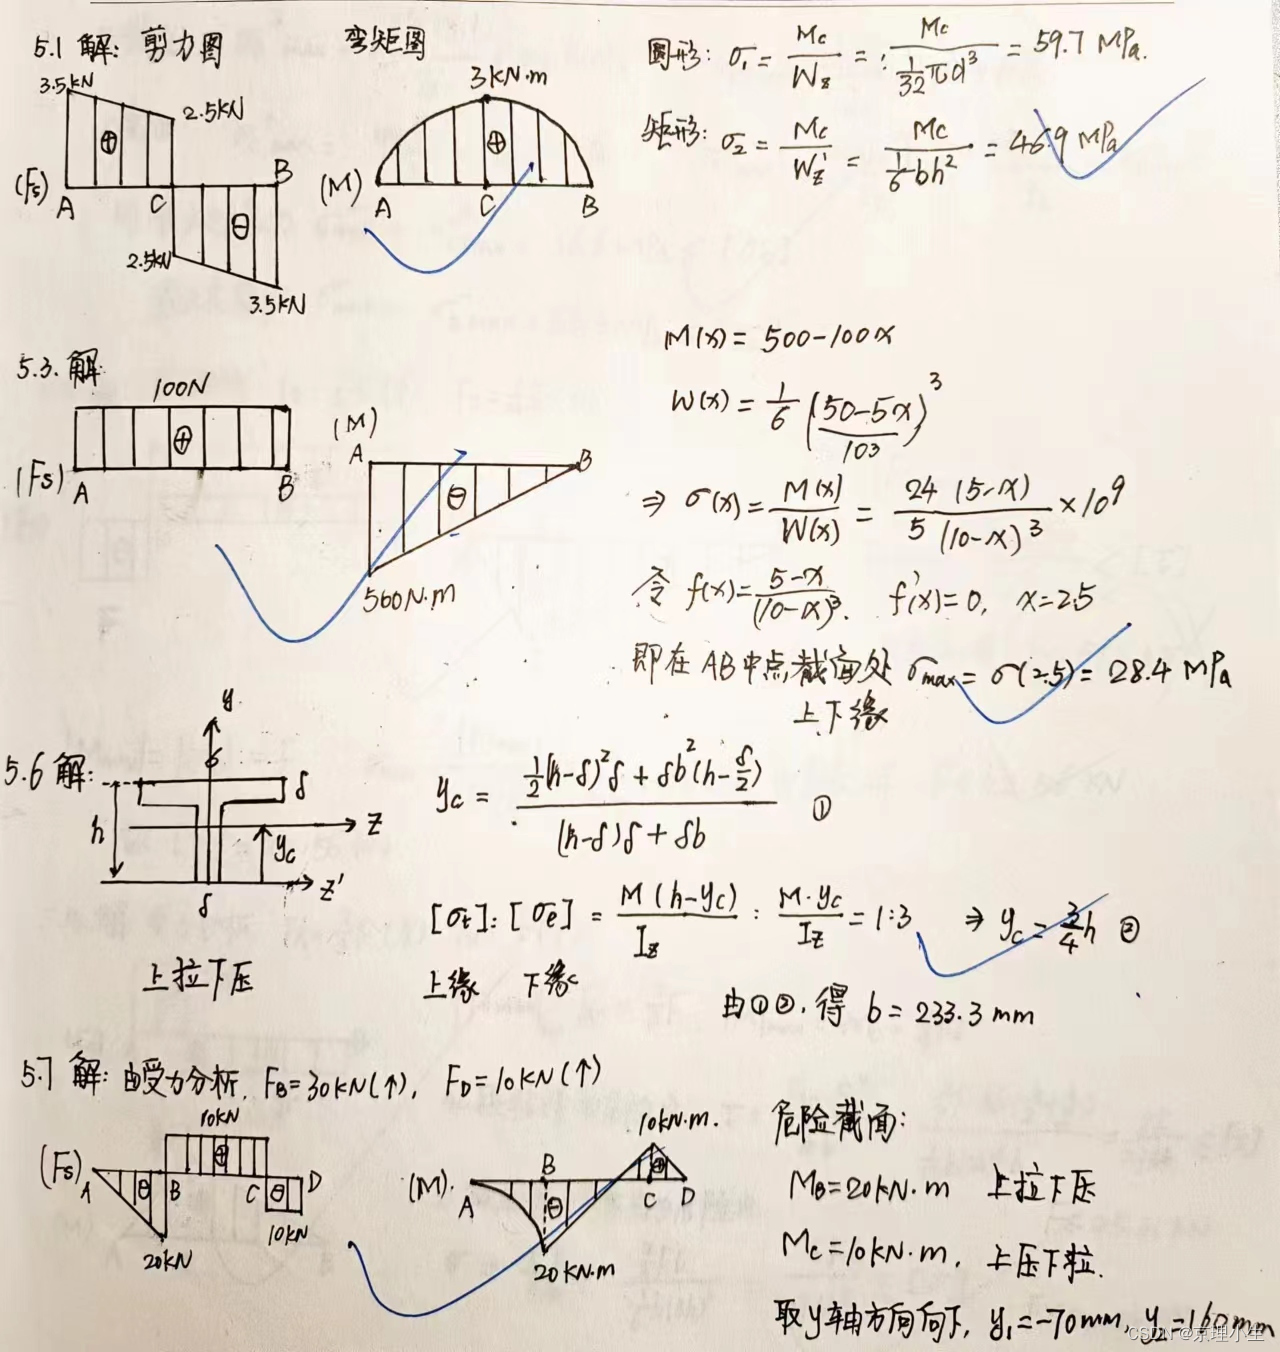 5.1 解: 剪力图 弯矩图
3.5kN
2.5kN
⊕
(Fs)
A C B
⊖
2.5kN
3.5kN
3kN·m
⊕
(M)
A C B
圆形: σ₁ = Mc/Wz = Mc/(1/32 πd³) = 59.7 MPa.
矩形: σ₂ = Mc/Wz' = Mc/(1/6 bh²) = 46.9 MPa
5.3. 解:
100N
⊕
(Fs)
A B
(M)
A B
⊖
500N·m
M(x) = 500-100x
W(x) = 1/6 ((50-5x)/10³)³
⇒ σ(x) = M(x)/W(x) = 24(5-x)/5(10-x)³ ×10⁹
令 f(x) = (5-x)/(10-x)³. f'(x)=0, x=2.5
即在AB中点截面处 σmax = σ(2.5) = 28.4 MPa
上下缘
5.6 解:
y
δ
δ
h
z
yc
z'
δ
上拉下压
yc = (½(h-δ)²δ + δb²(h-δ/2))/((h-δ)δ + δb) ①
[σt]:[σc] = M(h-yc)/Iz : M·yc/Iz = 1:3 ⇒ yc = 3/4 h ②
上缘 下缘
由①②, 得 b = 233.3 mm
5.7 解: 由受力分析, FB=30kN(↑), FD=10kN(↑)
10kN
(Fs)
⊕
A ⊖ B C ⊖ D
20kN
10kN
10kN·m.
(M).
A B ⊖ ⊕ C D
20kN·m
危险截面:
MB=20kN·m 上拉下压
Mc=10kN·m, 上压下拉.
取y轴方向向下, y₁=-70mm, y₂=160mm
CSDN @京理小生